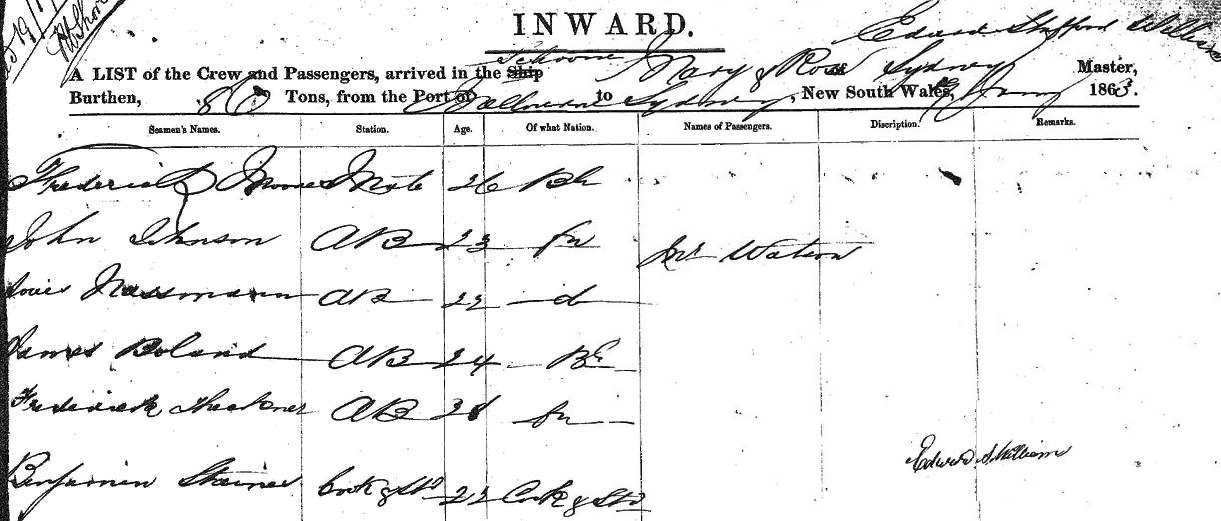 INWARD.
Edward Stafford William
A LIST of the Crew and Passengers, arrived in the Ship Schooner Mary & Rose Sydney Master,
Burthen, 80 Tons, from the Port of Melbourne to Sydney, New South Wales, Jany 1863.
Seamen's Names. Station. Age. Of what Nation. Names of Passengers. Discription. Remarks.
Frederick Moore Mate 26 Bh
John Johnson AB 23 fn Mr Watson
Louis Nassmann AB 22 d
James Boland AB 24 Bh
Frederick AB fn
Edward S William
Benjamin Stainer Cook & Std 22 Cook & Std